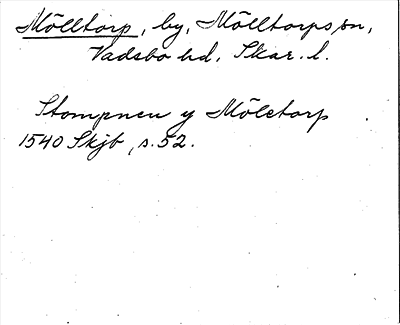 Mölltorp, by, Mölltorps sn,
Vadsbo hd, Skar. l.
Stompnen y Möletorp
1540 Skjb, s. 52.